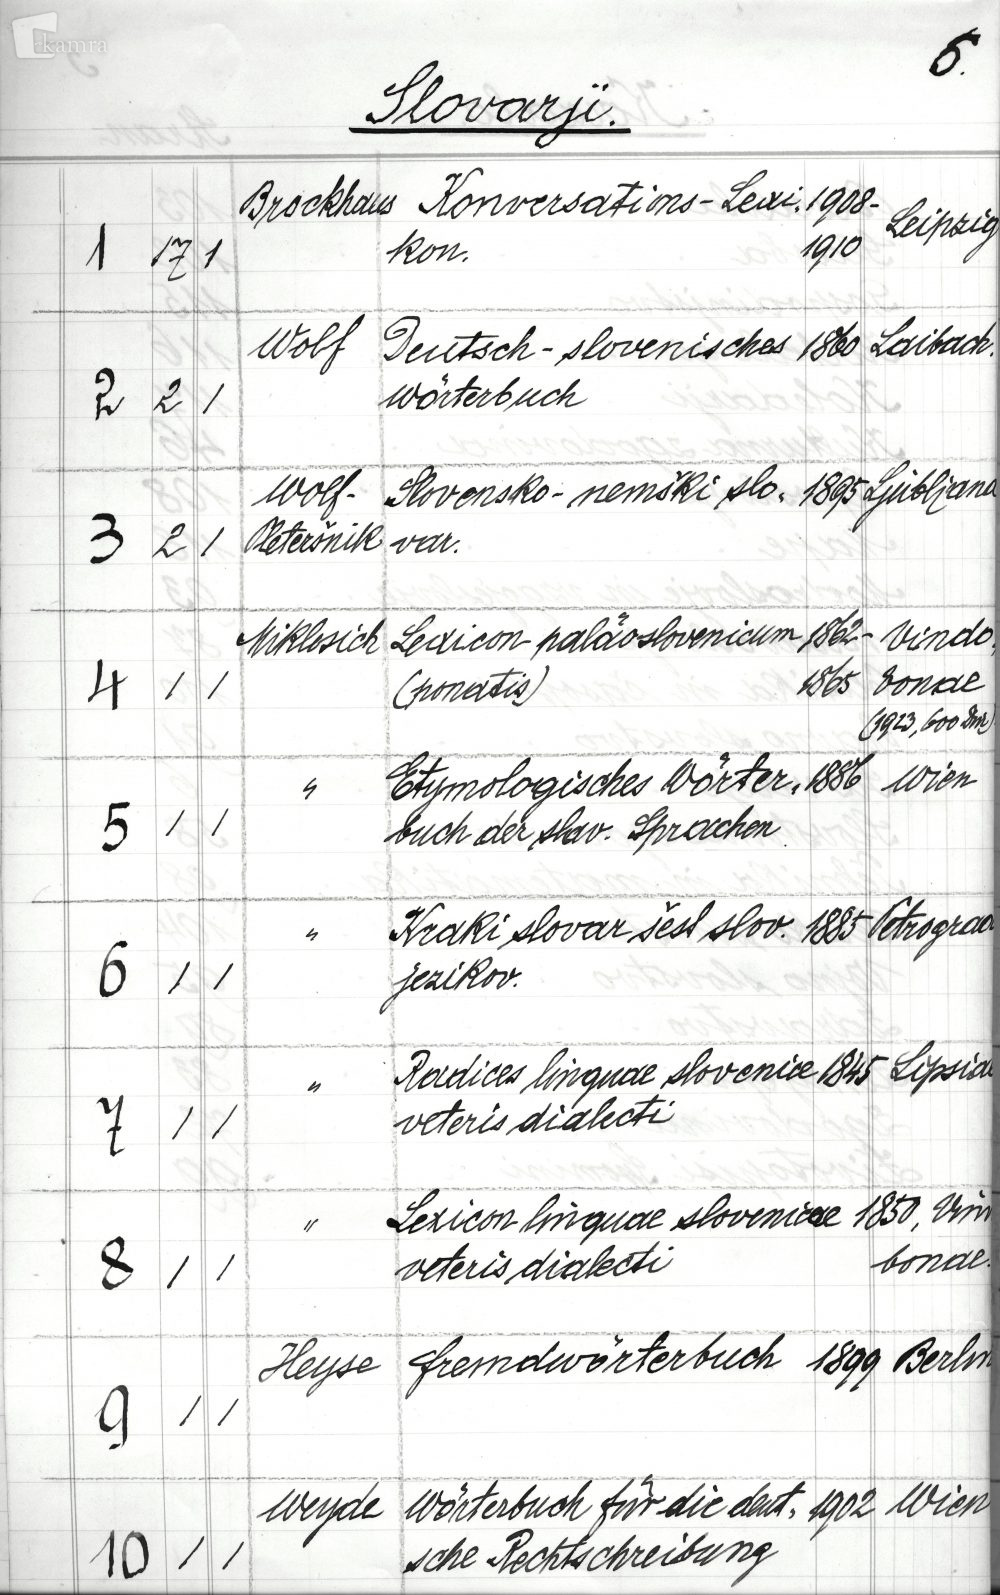 kamra
5.
Slovarji.
1 17 1 Brockhaus Konversations-Lexi- 1908- Leipzig
kon. 1910
2 2 1 Wolf Deutsch-slovenisches 1860 Laibach.
Wörterbuch
3 2 1 Wolf- Slovensko-nemški slo- 1895 Ljubljana
Pleteršnik var.
4 1 1 Miklosich Lexicon paläoslovenicum 1862- Vindo-
(ponatis) 1865 bonae
(1923, 600 Din)
5 1 1 " Etymologisches Wörter- 1886 Wien
buch der slav. Sprachen
6 1 1 " Kratki slovar šest slov. 1885 Petrograd
jezikov.
7 1 1 " Radices linguae slovenicae 1845 Lipsiae
veteris dialecti
8 1 1 " Lexicon linguae slovenicae 1850, Vin
veteris dialecti bonae.
9 1 1 Heyse Fremdwörterbuch 1899 Berlin
10 1 1 Weyde Wörterbuch für die deut- 1902 Wien
sche Rechtschreibung